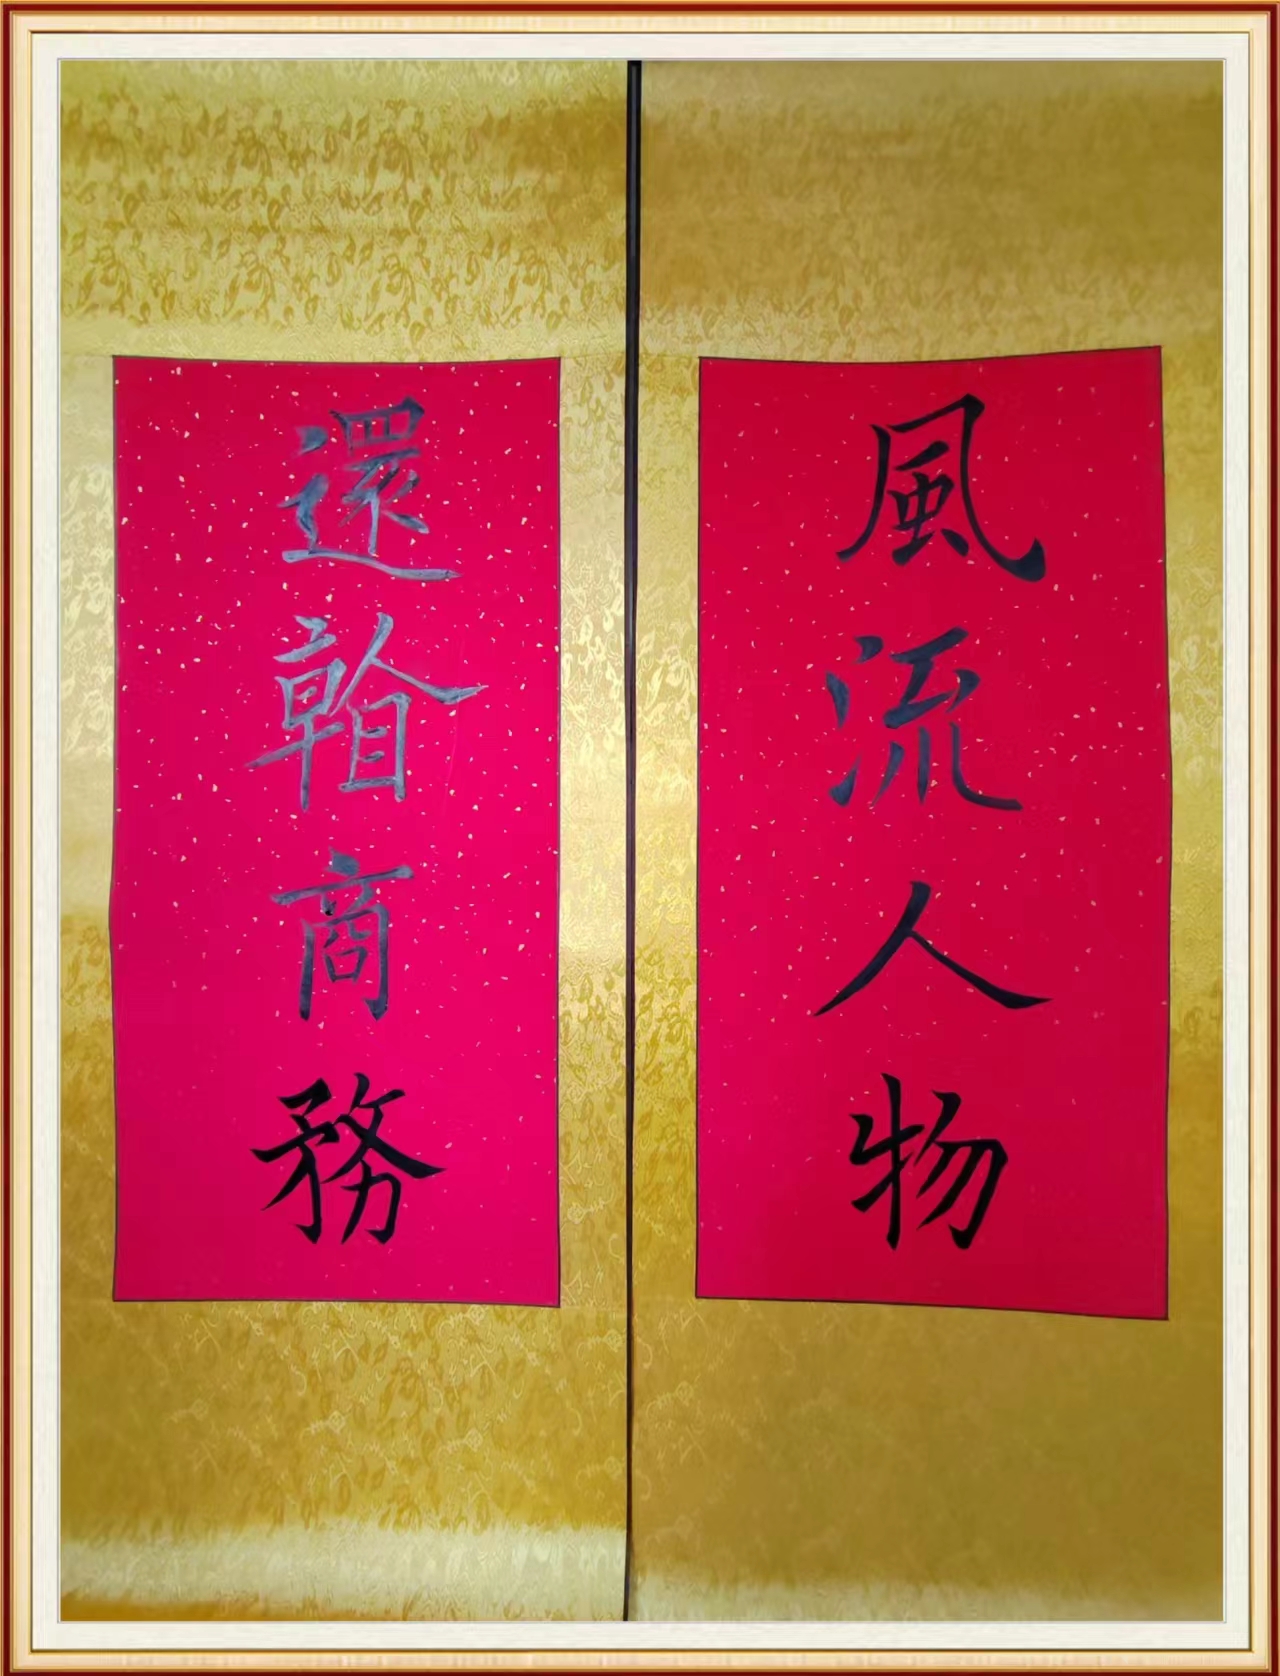 風流人物
還商務